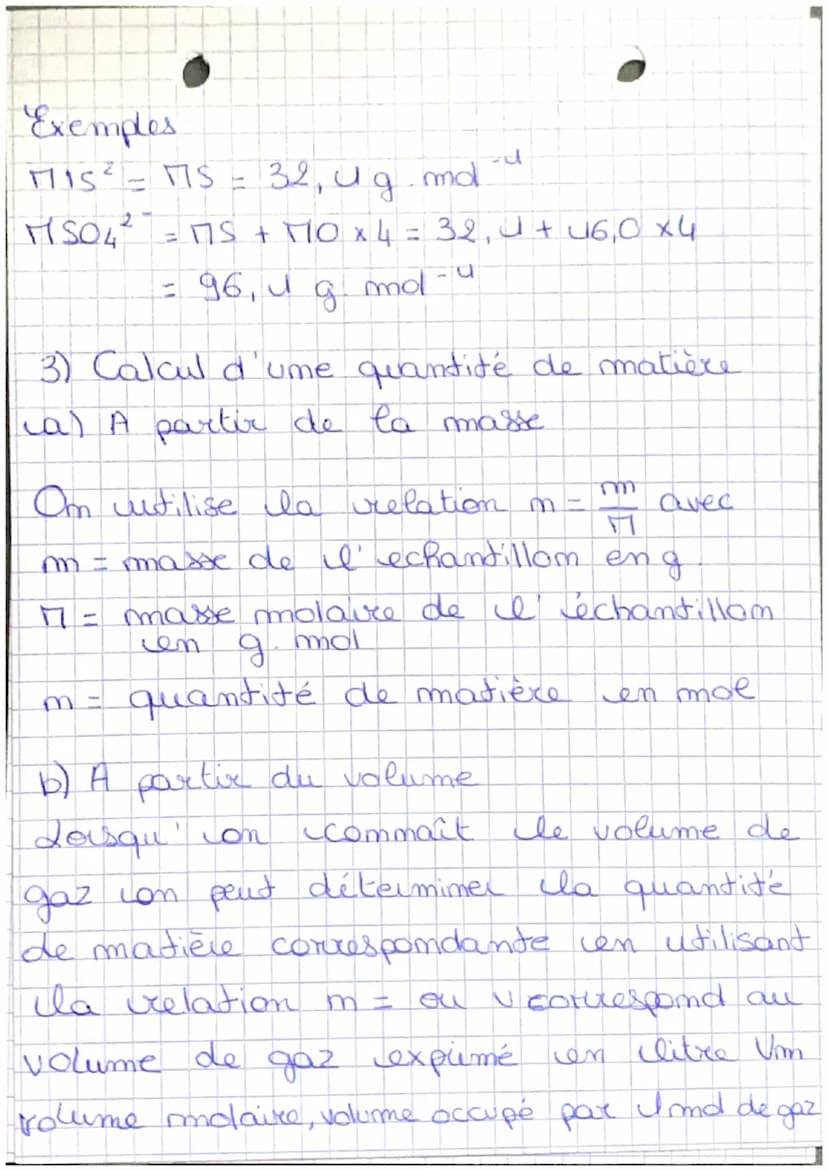 Exemples
M1S² = MS = 32,1 g.mol⁻¹
MSO₄²⁻ = MS + MO x 4 = 32,1 + 16,0 x 4
= 96,1 g.mol⁻¹
3) Calcul d'une quantité de matière
a) A partir de la masse
On utilise la relation n = m/M avec
m = masse de l'echantillon en g.
M = masse molaire de l'échantillon
en g.mol
n = quantité de matière en mol
b) A partir du volume
Lorsqu'on connaît le volume de
gaz on peut déterminer la quantité
de matière correspondante en utilisant
la relation n = ou v correspond au
volume de gaz exprimé en litre Vm
volume molaire, volume occupé par 1 mol de gaz